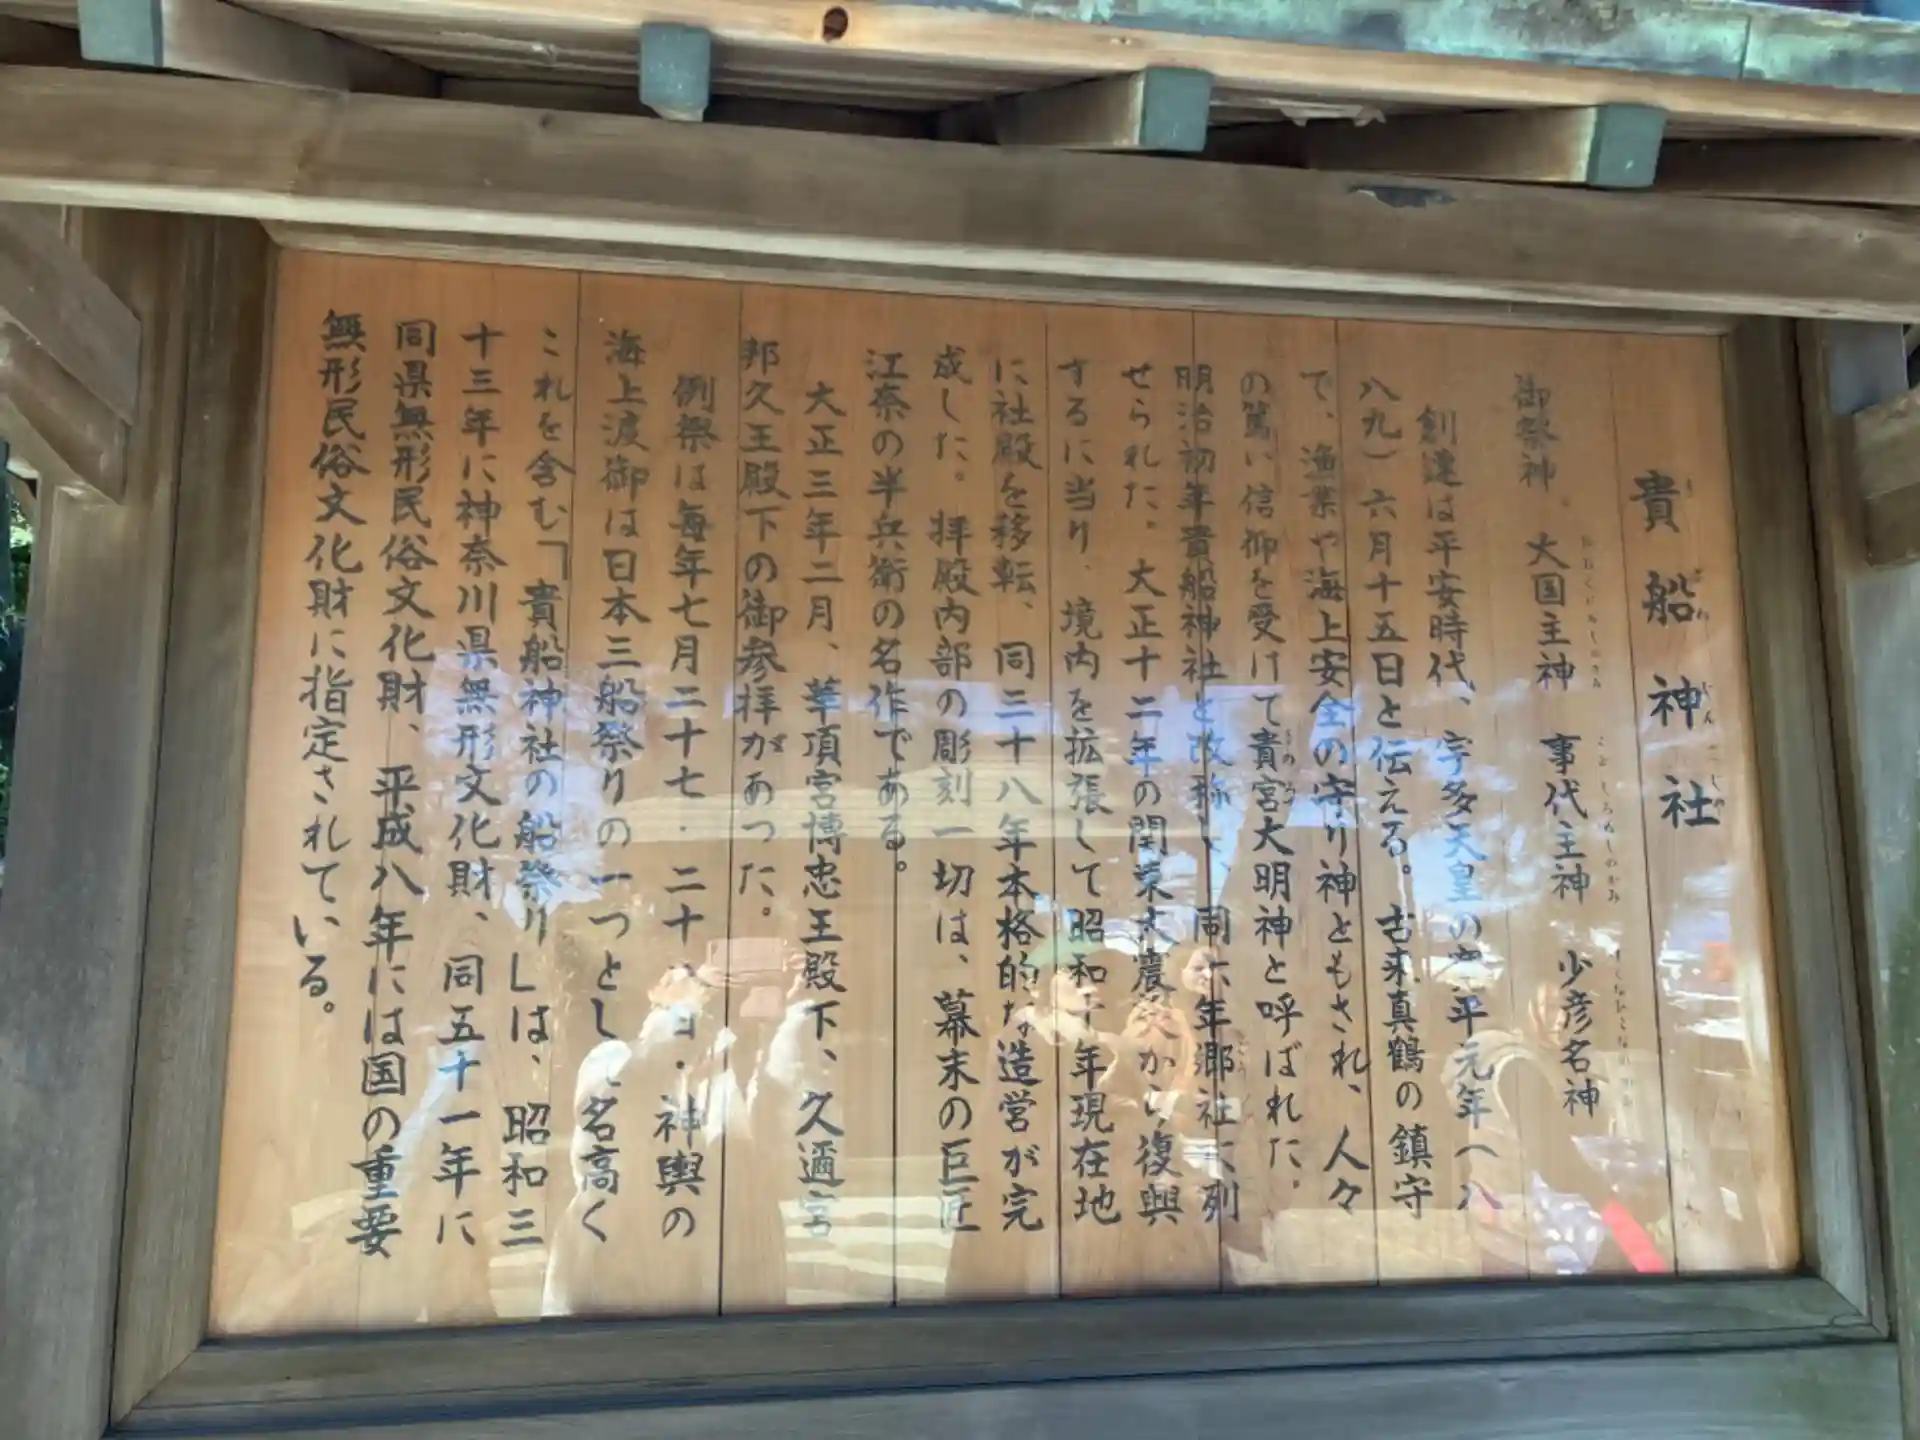 貴船神社
御祭神　大国主神　事代主神　少彦名神
創建は平安時代、宇多天皇の寛平元年（八
八九）六月十五日と伝える。古来真鶴の鎮守
で、漁業や海上安全の守り神ともされ、人々
の篤い信仰を受けて貴宮大明神と呼ばれた。
明治初年貴船神社と改称し、同六年郷社に列
せられた。大正十二年の関東大震災から復興
するに当り、境内を拡張して昭和十年現在地
に社殿を移転、同三十八年本格的な造営が完
成した。拝殿内部の彫刻一切は、幕末の巨匠
江奈の半兵衛の名作である。
大正三年二月、華頂宮博忠王殿下、久邇宮
邦久王殿下の御参拝があった。
例祭は毎年七月二十七・二十八日・神輿の
海上渡御は日本三船祭りの一つとして名高く
これを含む「貴船神社の船祭り」は、昭和三
十三年に神奈川県無形文化財、同五十一年に
同県無形民俗文化財、平成八年には国の重要
無形民俗文化財に指定されている。